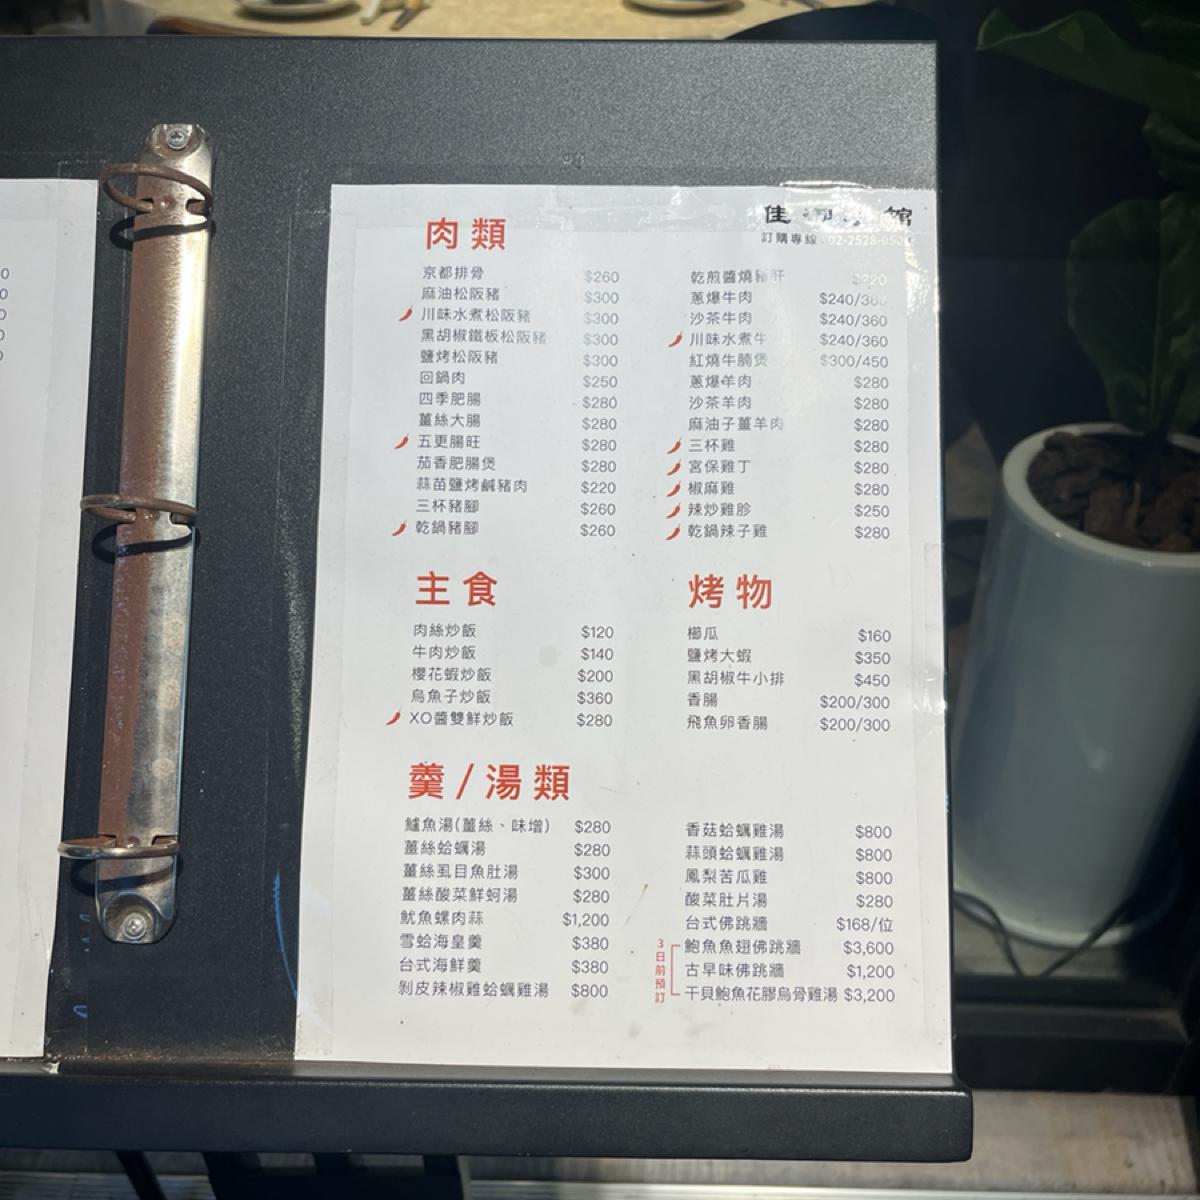 佳 館
訂購專線:02-2528-050
肉類
京都排骨 $260
麻油松阪豬 $300
川味水煮松阪豬 $300
黑胡椒鐵板松阪豬 $300
鹽烤松阪豬 $300
回鍋肉 $250
四季肥腸 $280
薑絲大腸 $280
五更腸旺 $280
茄香肥腸煲 $280
蒜苗鹽烤鹹豬肉 $220
三杯豬腳 $260
乾鍋豬腳 $260
乾煎醬燒豬肝 $220
蔥爆牛肉 $240/360
沙茶牛肉 $240/360
川味水煮牛 $240/360
紅燒牛腩煲 $300/450
蔥爆羊肉 $280
沙茶羊肉 $280
麻油子薑羊肉 $280
三杯雞 $280
宮保雞丁 $280
椒麻雞 $280
辣炒雞胗 $250
乾鍋辣子雞 $280
主食
肉絲炒飯 $120
牛肉炒飯 $140
櫻花蝦炒飯 $200
烏魚子炒飯 $360
XO醬雙鮮炒飯 $280
烤物
櫛瓜 $160
鹽烤大蝦 $350
黑胡椒牛小排 $450
香腸 $200/300
飛魚卵香腸 $200/300
羹/湯類
鱸魚湯(薑絲、味增) $280
薑絲蛤蠣湯 $280
薑絲虱目魚肚湯 $300
薑絲酸菜鮮蚵湯 $280
魷魚螺肉蒜 $1,200
雪蛤海皇羹 $380
台式海鮮羹 $380
剝皮辣椒雞蛤蠣雞湯 $800
香菇蛤蠣雞湯 $800
蒜頭蛤蠣雞湯 $800
鳳梨苦瓜雞 $800
酸菜肚片湯 $280
台式佛跳牆 $168/位
3日前預訂
鮑魚魚翅佛跳牆 $3,600
古早味佛跳牆 $1,200
干貝鮑魚花膠烏骨雞湯 $3,200